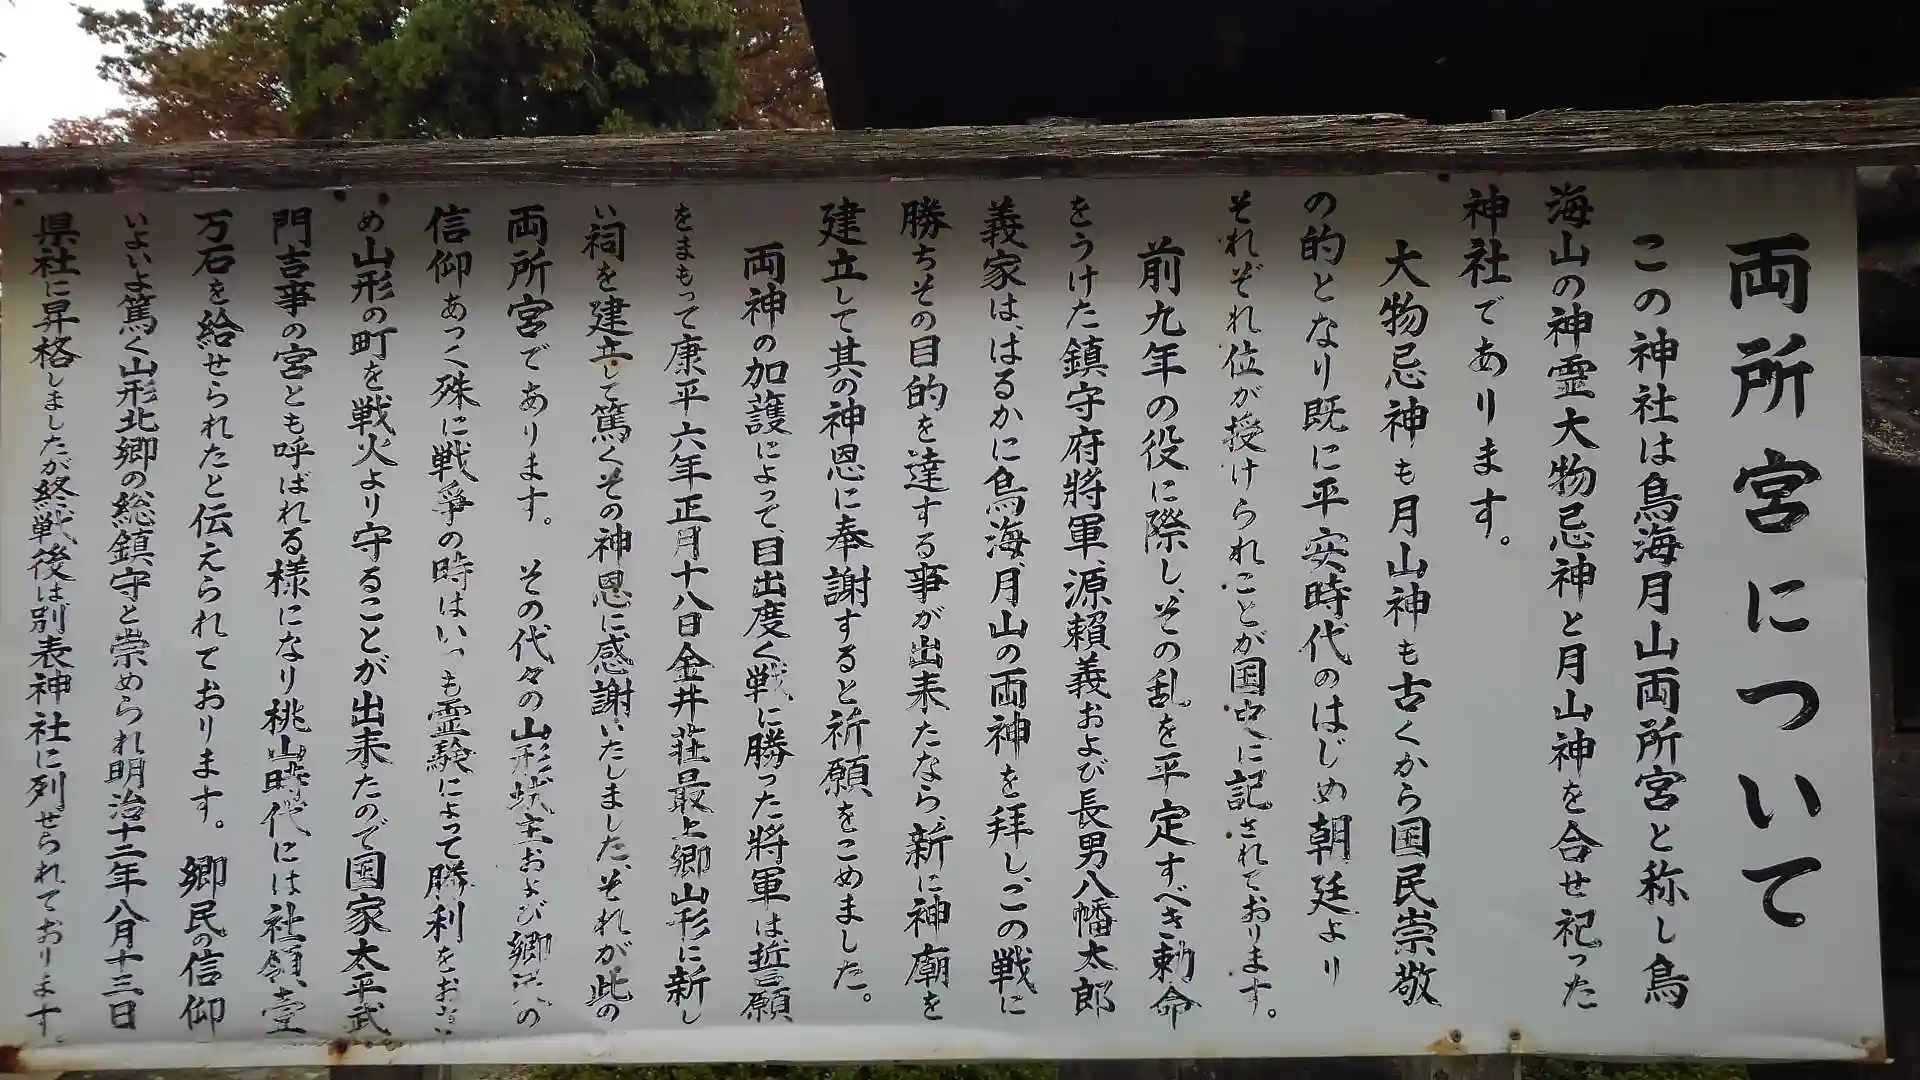 両所宮について
この神社は鳥海月山両所宮と称し鳥
海山の神霊大物忌神と月山神を合せ祀った
神社であります。
大物忌神も月山神も古くから国民崇敬
の的となり既に平安時代のはじめ朝廷より
それぞれ位が授けられことが国史に記されております。
前九年の役に際し、その乱を平定すべき勅命
をうけた鎮守府将軍、源頼義および長男八幡太郎
義家は、はるかに鳥海、月山の両神を拝し、この戦に
勝ちその目的を達する事が出来たなら、新に神廟を
建立して其の神恩に奉謝すると祈願をこめました。
両神の加護によって、目出度く戦に勝った将軍は誓願
をまもって康平六年正月十八日金井荘最上郷山形に新し
い祠を建立して篤くその神恩に感謝いたしました、それが此の
両所宮であります。その代々の山形城主および郷民の
信仰あつく殊に戦争の時はいつも霊験によって勝利をおさ
め山形の町を戦火より守ることが出来たので国家太平武
門吉事の宮とも呼ばれる様になり桃山時代には社領壹
万石を給せられたと伝えられております。郷民の信仰
いよいよ篤く山形北郷の総鎮守と崇められ明治十二年八月十三日
県社に昇格しましたが終戦後は別表神社に列せられております。